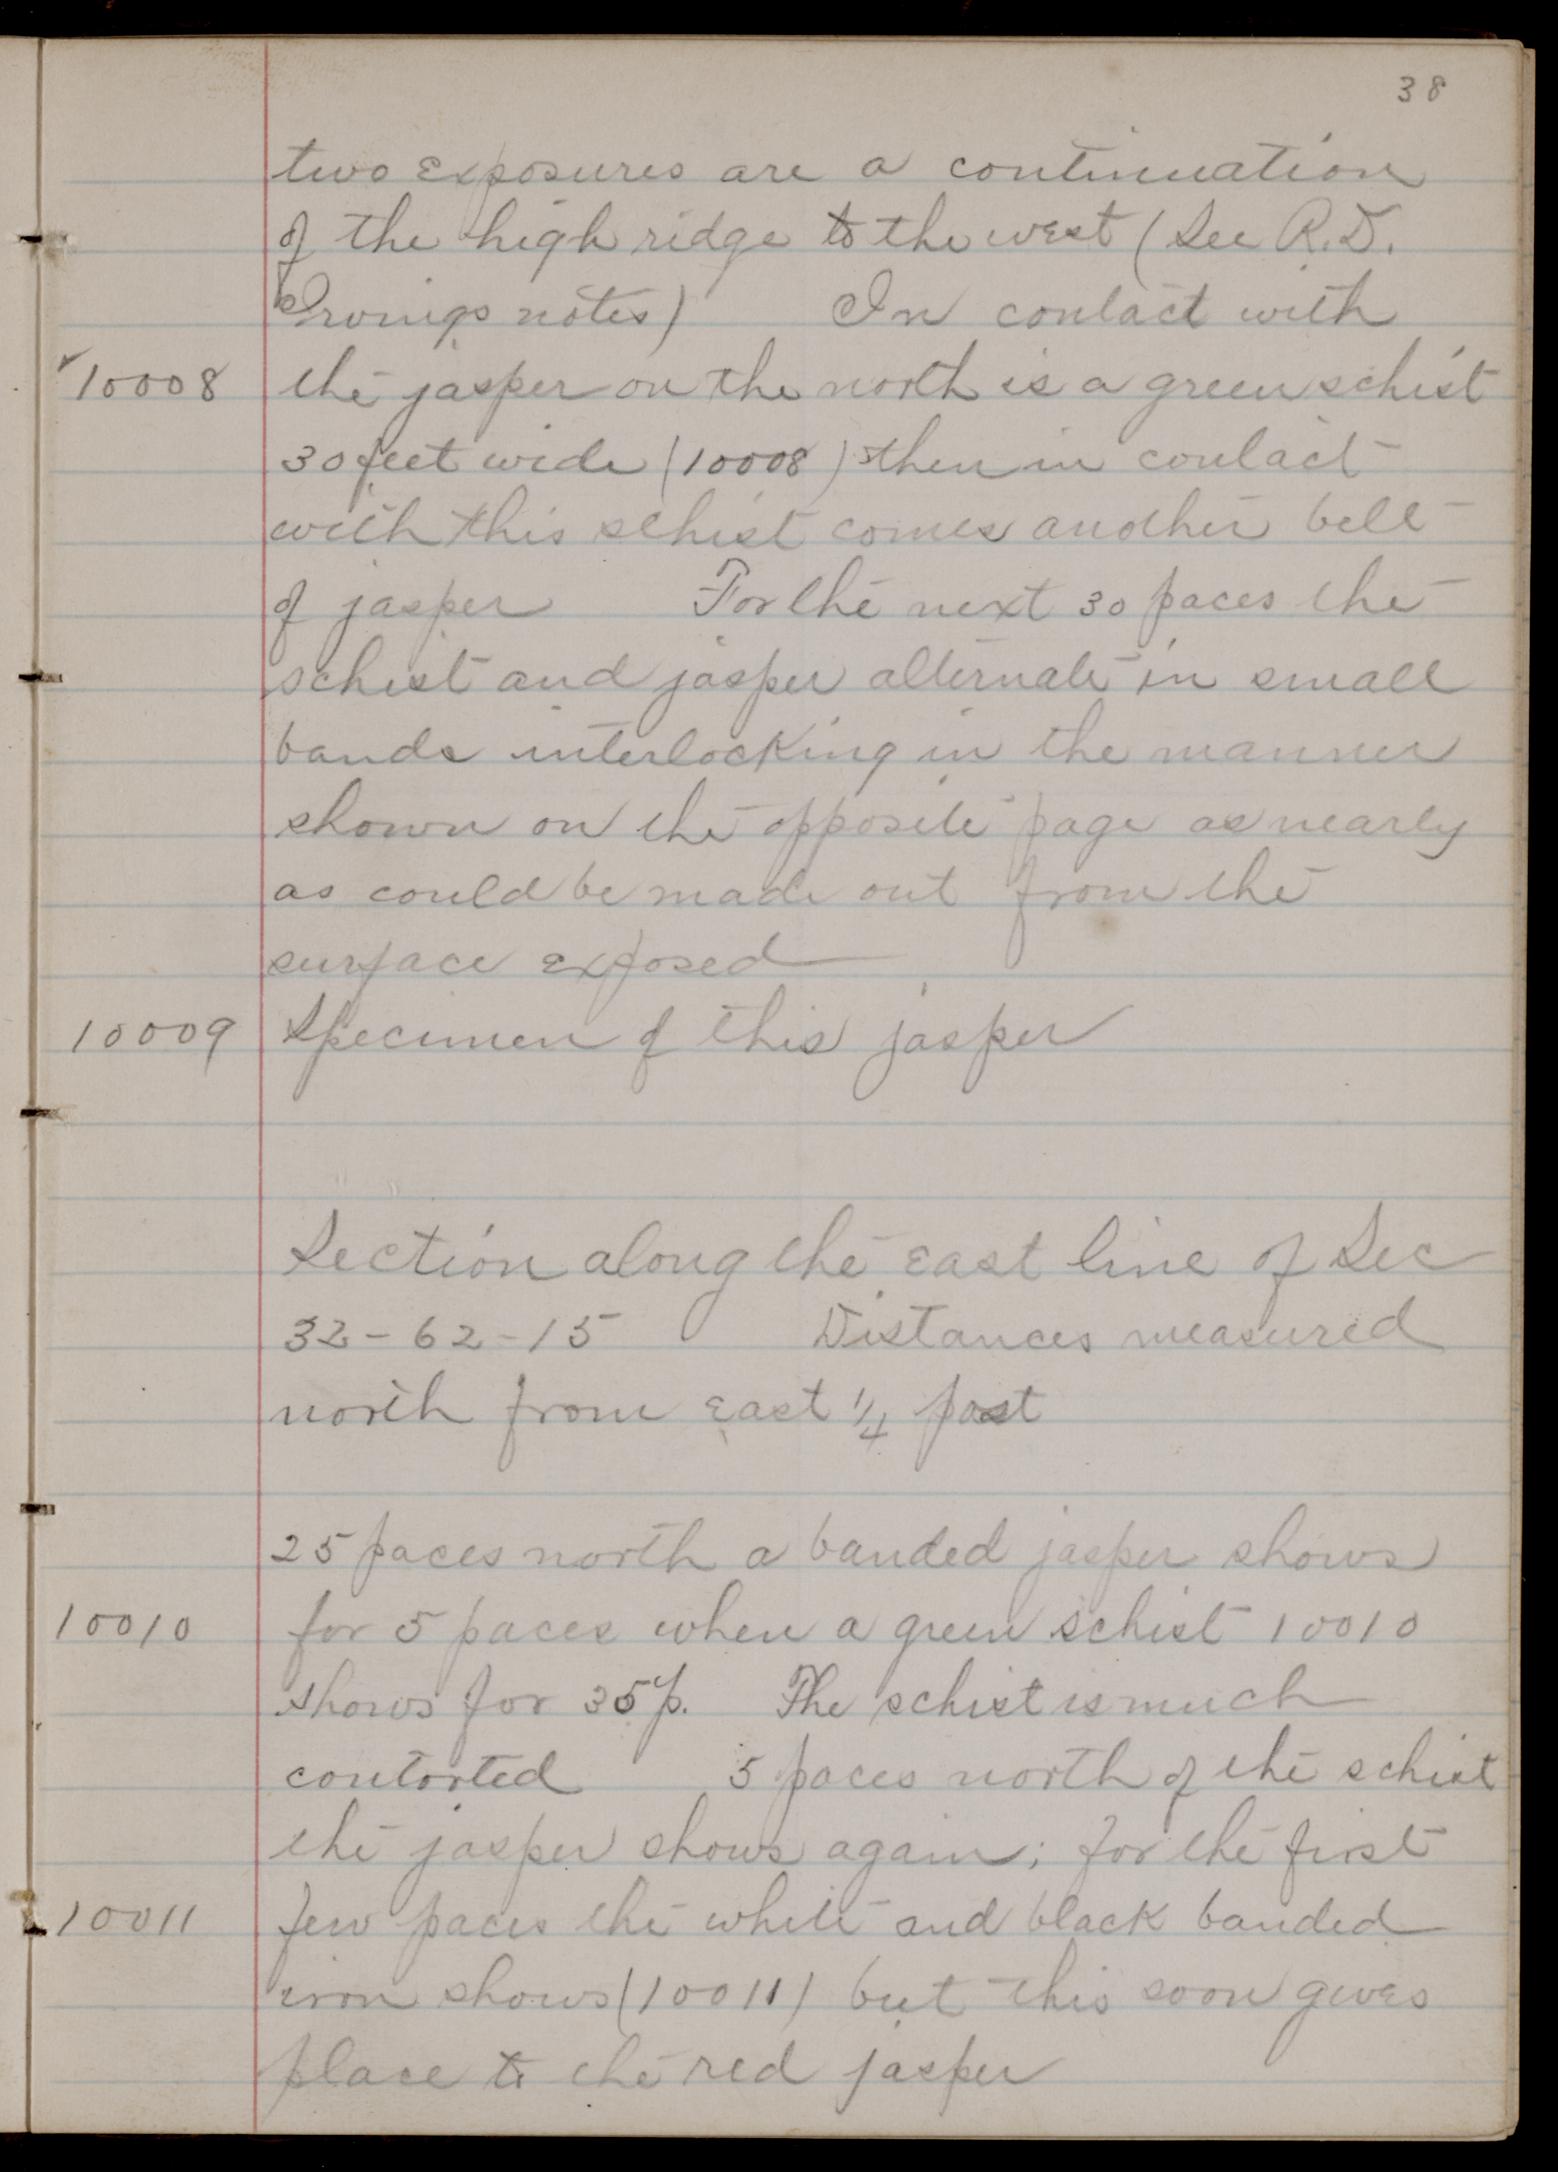 38
two exposures are a continuation
of the high ridge to the west (See R.D.
Irvings notes) In contact with
10008 the jasper on the north is a green schist
30 feet wide (10008) then in contact
with this schist comes another belt
of jasper For the next 30 paces the
schist and jasper alternate in small
bands interlocking in the manner
shown on the opposite page as nearly
as could be made out from the
surface exposed
10009 Specimen of this jasper
Section along the east line of Sec
32-62-15 Distances measured
north from east 1/4 post
25 paces north a banded jasper shows
10010 for 5 paces when a green schist 10010
shows for 35 p. The schist is much
contorted 5 paces north of the schist
the jasper shows again; for the first
10011 few paces the white and black banded
iron shows (10011) but this soon gives
place to the red jasper